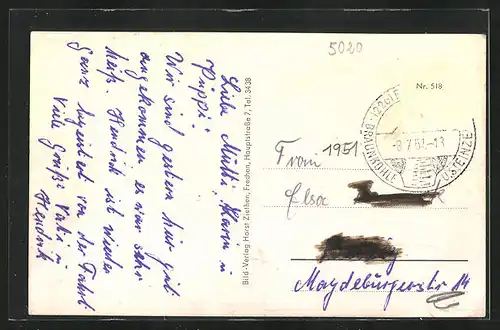 5020
Nr. 518
Liebe Mutti Karin u
Püppi!
Wir sind gestern hier gut
angekommen es war sehr
heiß. Hendrik ist wieder
Ganz begeistert von der Fahrt
Viele Grüße Vati u
Hendrik
Bild-Verlag Horst Ziethen, Frechen, Hauptstraße 7, Tel. 3438
1951
8.7.52.-13
Frau
Elsa
Magdeburgerstr 14